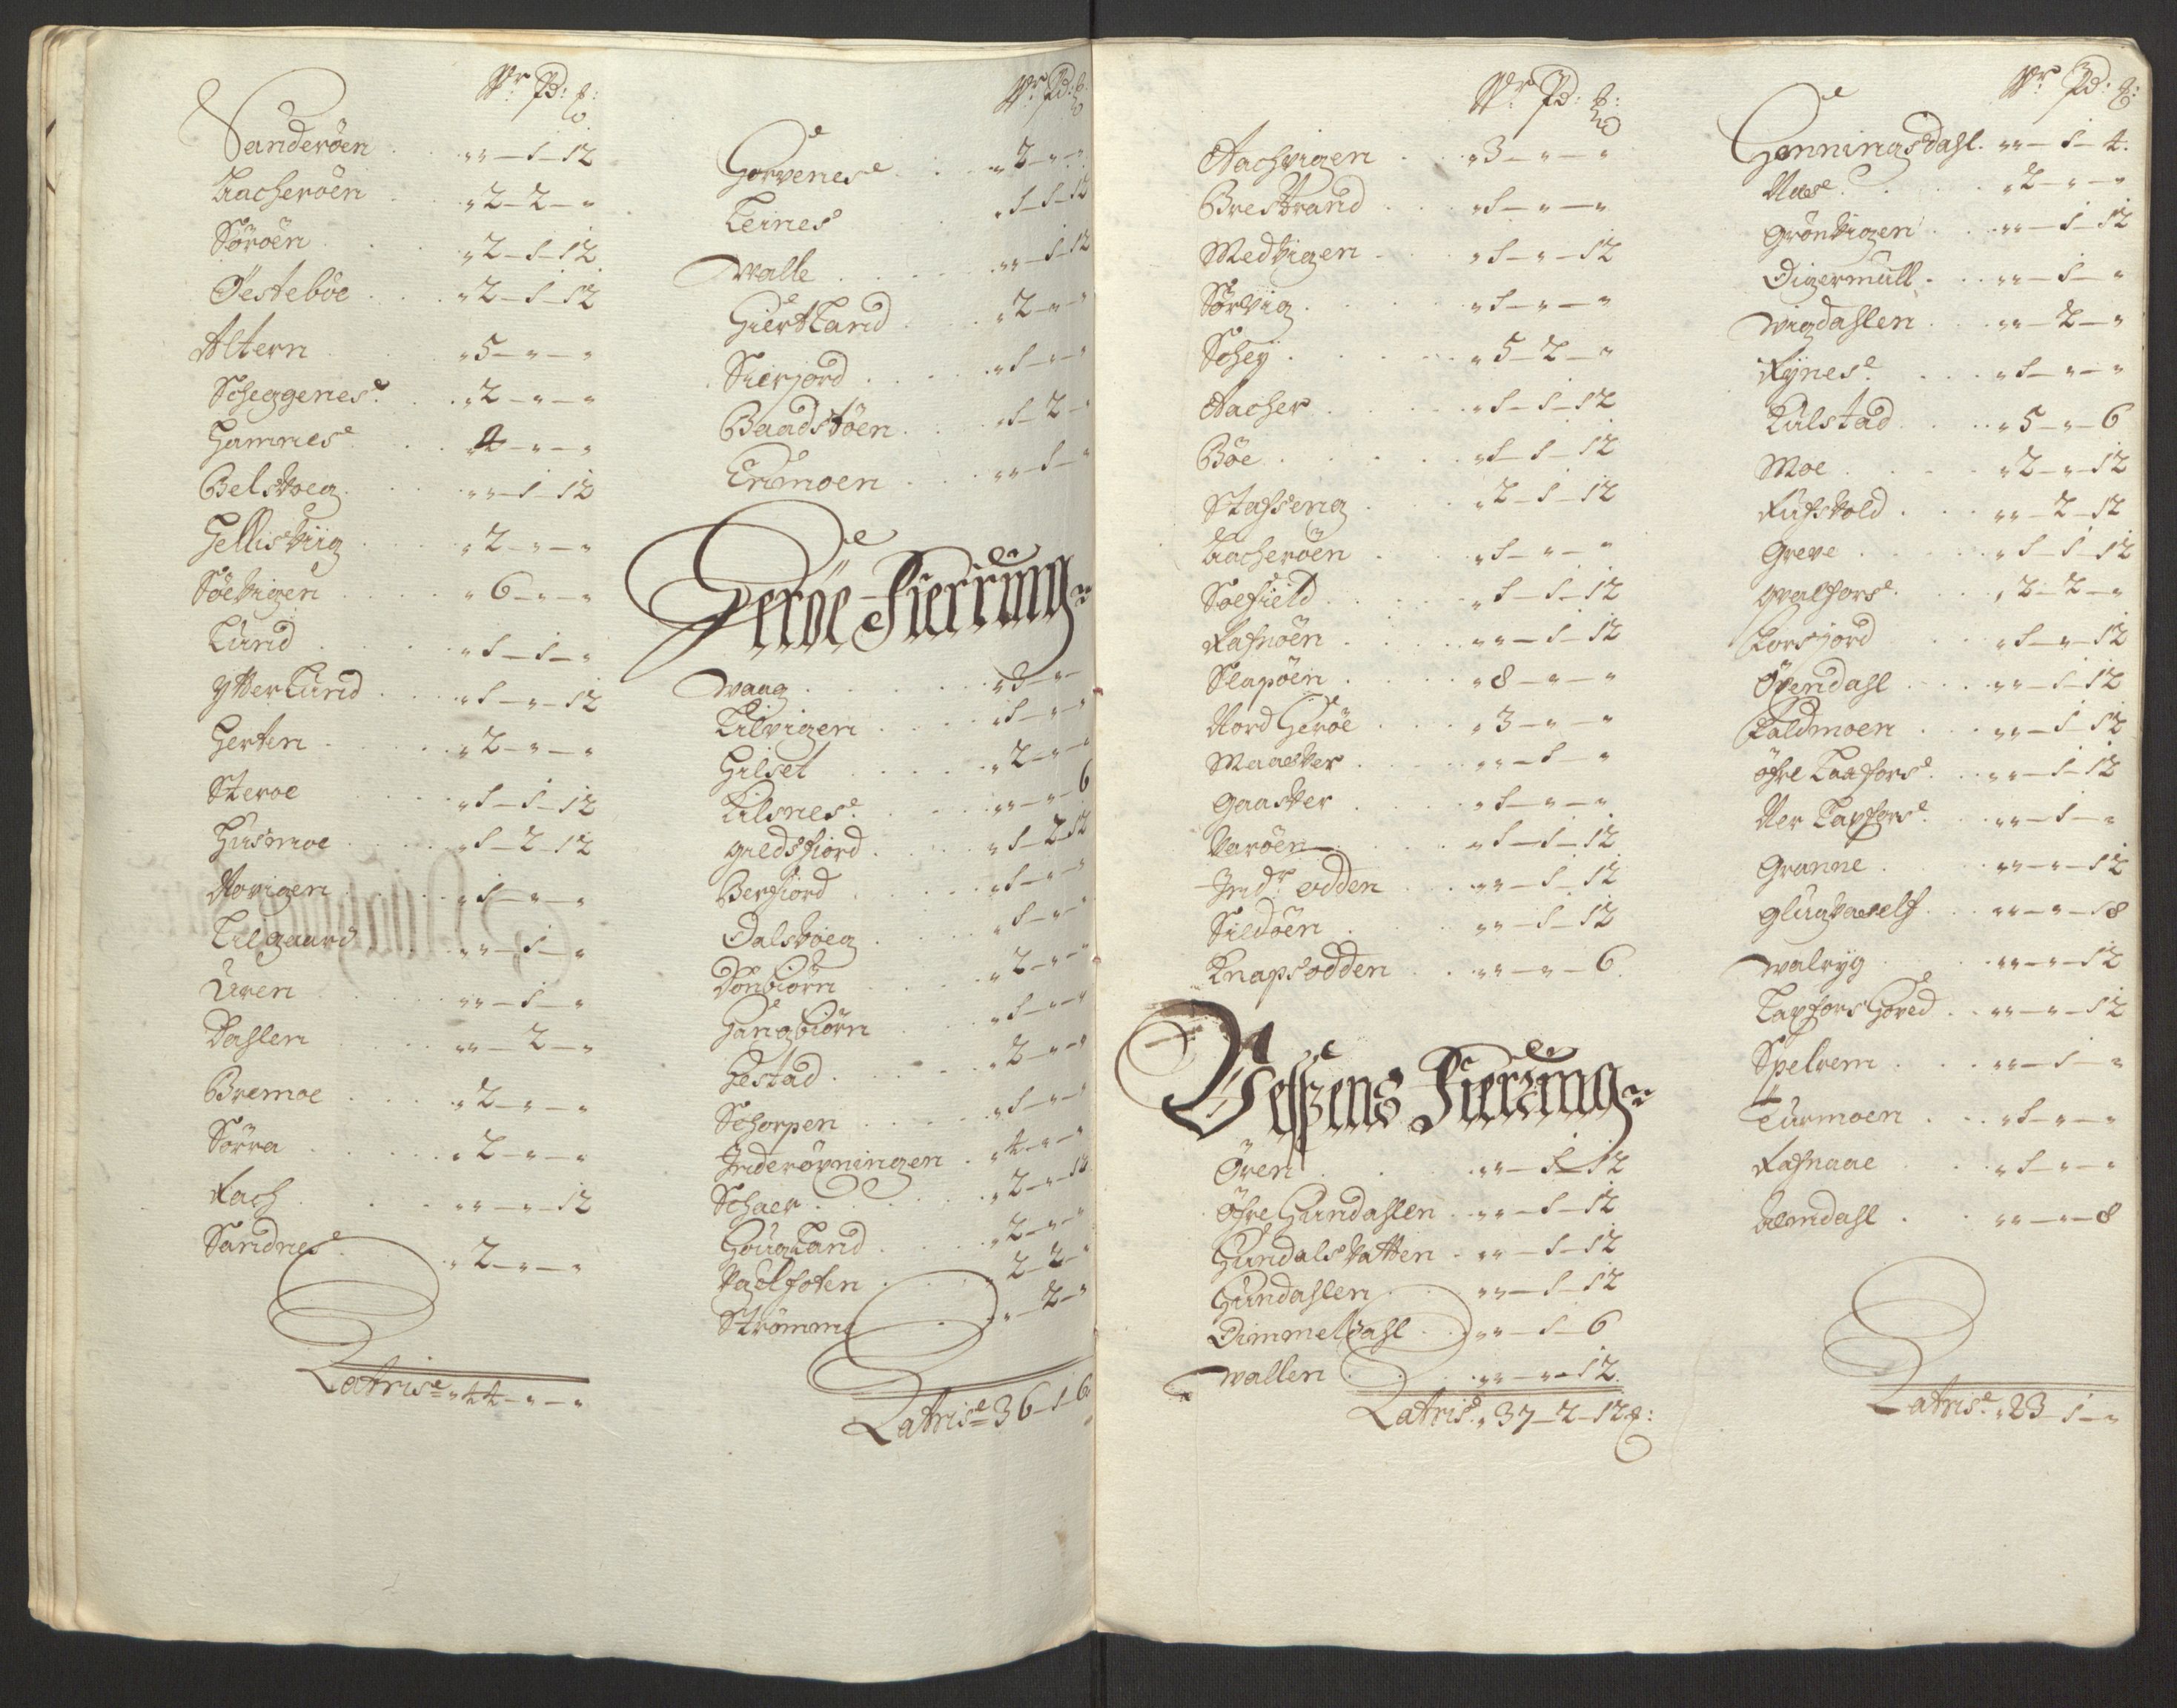 Wr: Pd: ȝ:
Sanderöen . „„—1—12
Aacheröen . „2—2—„
Söröen . „2—1—12
Östeböe . „2—1—12
Altern . „5—„—„
Scheggenes . „2—„—„
Hamnes . „4—„—„
Belsvoeg . „„—1—12
Hellisviig . „2—„—„
Söevigen . „6—„—„
Lund . „1—1—„
Ytter Lund . „1—„—12
Herten . „2—„—„
Steroe . „1—1—12
Husmoe . „1—2—12
Novigen . „1—„—„
Lilgaard . „„—1—„
Uren . „„—1—„
Dahlen . „„—2—„
Bremoe . „2—„—„
Sörra . „2—„—„
Rach . „„—„—12
Sandnes . „2—„—„
Latris „44—„—„
Wr: Pd: ȝ:
Horvenes . „2—„—„
Leines . „1—1—12
Walle . „„—1—12
Hiertland . „2—„—„
Sierjord . „1—„—„
Baadstöen . „1—2—„
Enmoen . „„—1—„
Heröe Fierrung
Waag
Lilvigen . „1—„—„
Hilset . „2—„—„
Lilsnes . „„—„—6
Gildsfiord . „1—2—12
Berfiord . „1—„—„
Dalsvoeg . „1—„—„
Dönbiörn . „2—„—„
Hangbiörn . „1—„—„
Hestad . „2—„—„
Schorpen . „1—„—„
Inderövningen . „4—„—„
Schaer . „2—„—12
Hougland . „2—„—„
Vaelfoten . „2—2—„
Strömme . „„—2—„
Latris 36—1—6
Wr: Pd: ȝ:
Aachvigen . „3—„—„
Brestrand . „1—„—„
Medvigen . „1—„—12
Sörviig . „1—„—„
Schey . „5—2—„
Aacher . „1—1—12
Böe . „1—1—12
Stafseng . „2—1—12
Aacheröen . „1—„—„
Soefield . „1—1—12
Rafnöen . „„—1—12
Slapöen . „8—„—„
Nord Heröe . „3—„—„
Maasver . „„—1—„
Gaasver . „1—„—„
Varöen . „1—1—12
Indr odden . „„—1—12
Sildöen . „„—1—12
Knapsodden . „„—„—6
Vefszens Fierrung
Ören . „„—1—12
Öfre Hundahlen . „„—1—12
Hundals Vatten . „„—1—12
Hundahlen . „„—1—12
Dimmeldahl . „„—1—6
Wallen . „„—„—12
Latris „37—2—12 ȝ:
Wr: Pd: ȝ:
Henningsdahl . „„—1—4
Naes . „2—„—„
Grönvigen . „„—1—12
Digermull . „„—1—„
Wigdahlen . „„—2—„
Rynes . „1—„—„
Kulstad . „5—„—6
Moe . „2—„—12
Rufsvold . „„—2—12
Greve . „1—1—12
Qvalfors . „2—2—„
Forsjord . „1—„—12
Övendahl . „„—1—12
Kaldmoen . „„—1—12
Öfre Laxfors . „„—1—12
Ner Laxfors . „„—1—„
Granne . „„—„—12
Glugvaself . „„—„—18
Walryg . „„—„—12
Laxfors Hoved . „„—„—12
Spelrem . „„—1—„
Turmoen . „1—„—„
Rafnaae . „1—„—„
Almdahl . „„—„—8
Latris „23—1—„